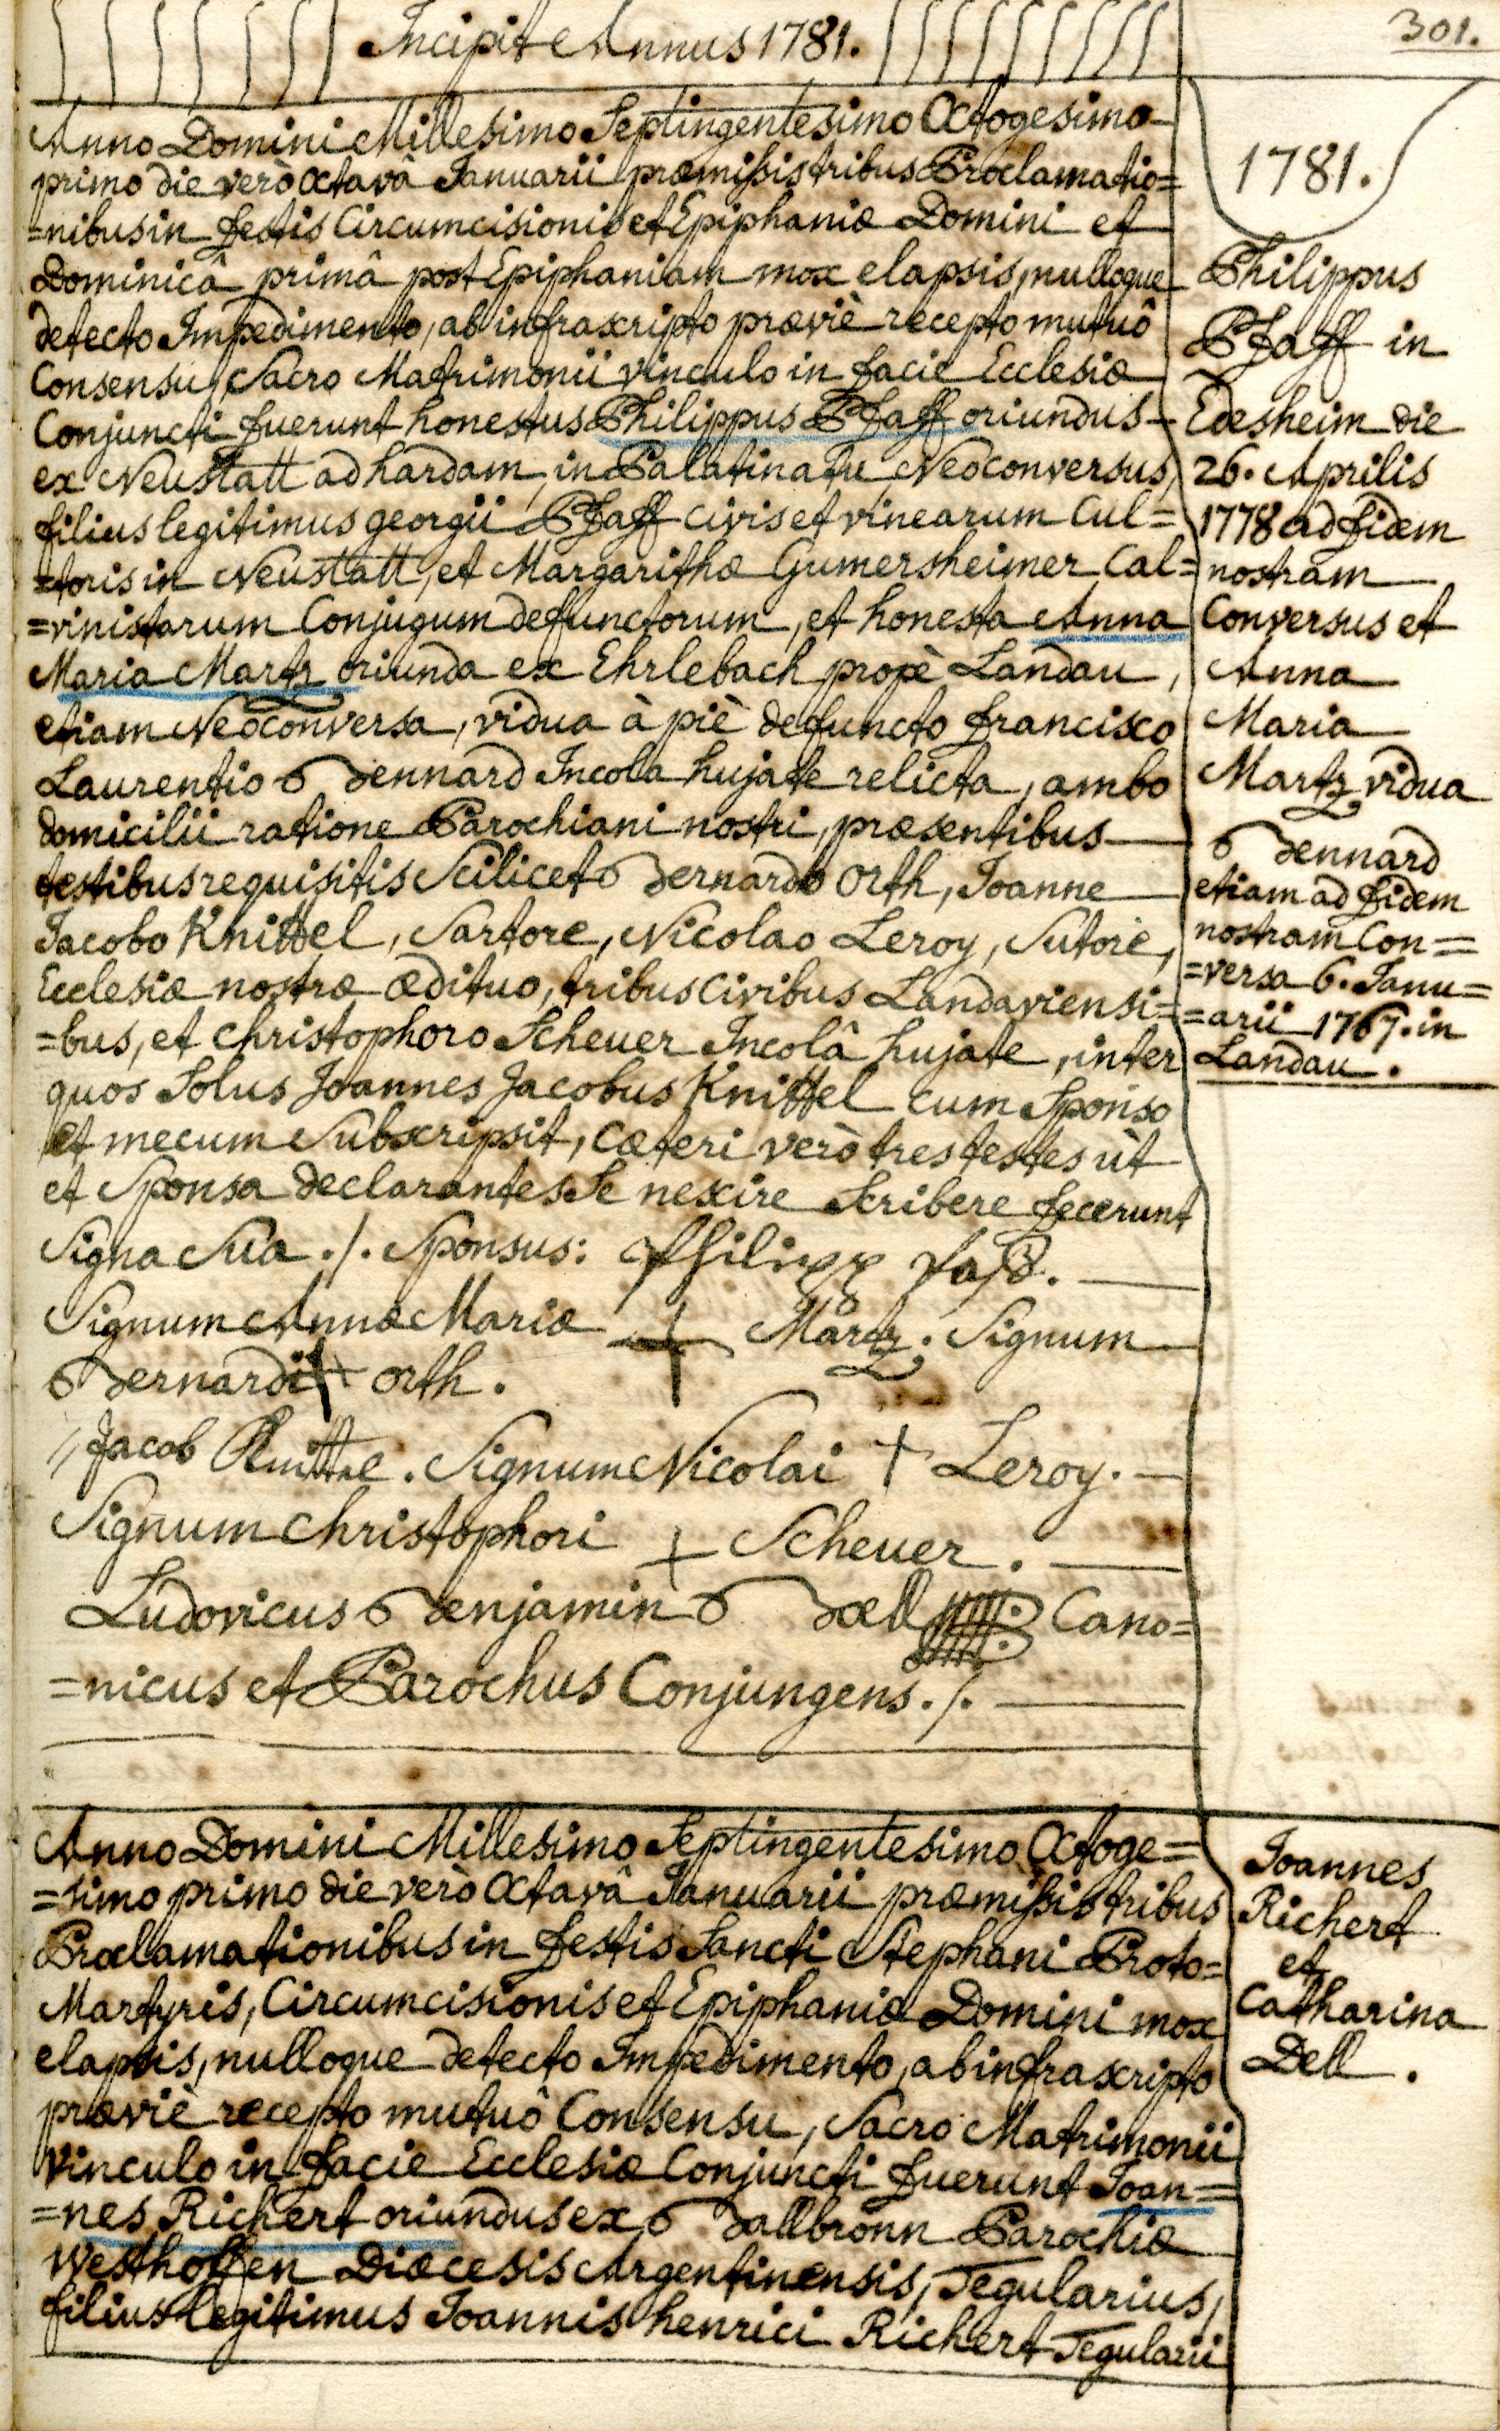 Incipit Annus 1781.
301.
Anno Domini Millesimo Septingentesimo Octogesimo
primo die verò Octavâ Januarii præmissis tribus Proclamatio=
=nibus in festis Circumcisionis et Epiphaniæ Domini et
Dominicâ primâ post Epiphaniam mox elapsis, nulloque
detecto Impedimento, ab infrascripto præviè recepto mutuô
Consensu, Sacro Matrimonii vinculo in facie Ecclesiæ
Conjuncti fuerunt honestus Philippus Pfaff oriundus
ex Neustatt ad hardam, in Palatinatu, Neoconversus,
filius legitimus georgii Pfaff civis et vinearum Cul=
=toris in Neustatt, et Margarithæ Gumersheimer Cal=
=vinistarum Conjugum defunctorum, et honesta Anna
Maria Martz oriunda ex Ehrlebach propè Landau,
etiam Neoconversa, vidua à piè defuncto francisco
Laurentio Bennard Incola hujate relicta, ambo
domicilii ratione Parochiani nostri, præsentibus
testibus requisitis Scilicet Bernardo Orth, Joanne
Jacobo Knittel, Sartore, Nicolao Leroy, Sutore,
Ecclesiæ nostræ ædituo, tribus Civibus Landaviensi=
=bus, et Christophoro Scheuer Incolâ hujate, inter
quos Solus Joannes Jacobus Knittel cum Sponso
et mecum Subscripsit, Cæteri verò tres testes ùt
et Sponsa declarantes Se nescire Scribere fecerunt
Signa Sua ./. Sponsus: Philipp Pfaff.
Signum Annæ Mariæ + Martz. Signum
Bernardi + Orth.
Jacob Knittel. Signum Nicolai + Leroy.
Signum Christophori + Scheuer.
Ludovicus Benjamin Bœll Cano=
=nicus et Parochus Conjungens ./.
1781.
Philippus
Pfaff in
Edesheim die
26. Aprilis
1778 ad fidem
nostram
Conversus et
Anna
Maria
Martz vidua
Bennard
etiam ad fidem
nostram Con=
=versa 6. Janu=
=arii 1767. in
Landau.
Anno Domini Millesimo Septingentesimo Octoge=
=simo primo die verò Octavâ Januarii præmissis tribus
Proclamationibus in festis Sancti Stephani Proto=
Martyris, Circumcisionis et Epiphaniæ Domini mox
elapsis, nulloque detecto Impedimento, ab infrascripto
præviè recepto mutuô Consensu, Sacro Matrimonii
vinculo in facie Ecclesiæ Conjuncti fuerunt Joan=
=nes Richert oriundus ex Ballbronn Parochiæ
Westhoffen Diœcesis Argentinensis, Tegularius,
filius legitimus Joannis henrici Richert Tegularii
Joannes
Richert
et
Catharina
Dell.